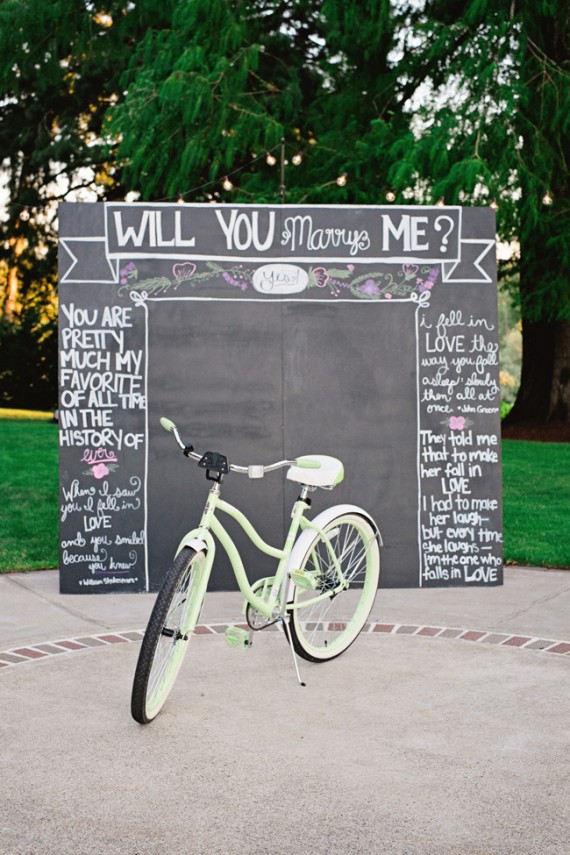 WILL YOU Marry ME?
Yes!
YOU ARE
PRETTY
MUCH MY
FAVORITE
OF ALL TIME
IN THE
HISTORY OF
ever
When I saw
you I fell in
LOVE
and you smiled
because you
knew
*William Shakespeare*
i fell in
LOVE the
way you fall
asleep: slowly
then all at
once *John Green*
They told me
that to make
her fall in
LOVE
I had to make
her laugh—
but every time
she laughs—
I'm the one who
falls in LOVE